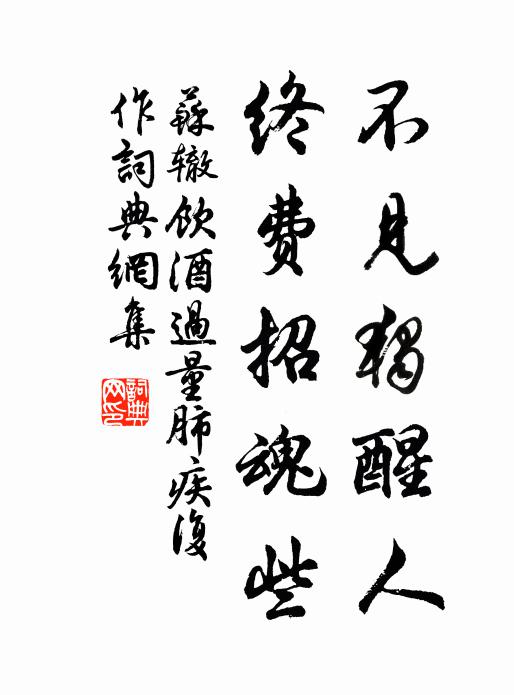 不見獨醒人
終費招魂些
蘇辙飲酒過量肺疾復
作詞典網集
詞典
网印